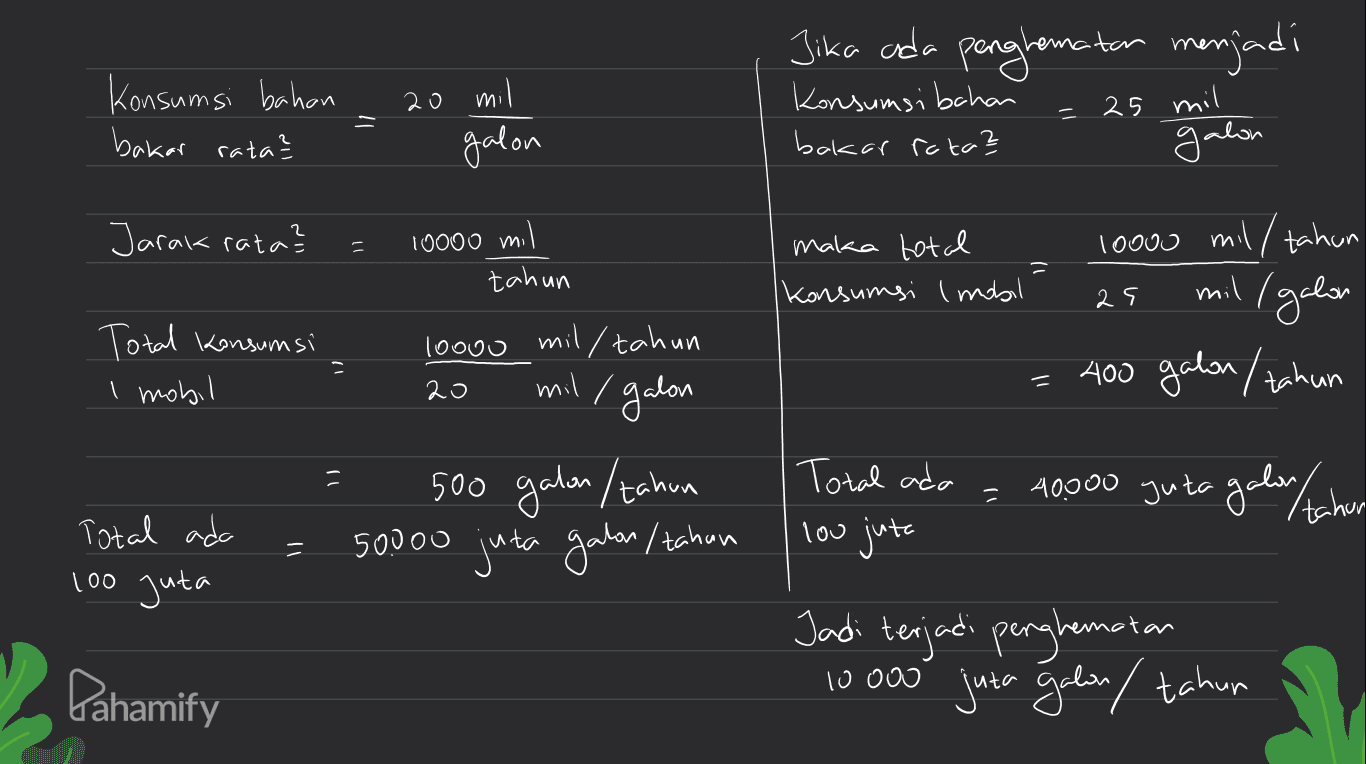 Konsumsi bahan = 20 mil
bakar rata² galon
Jarak rata² = 10000 mil
tahun
Total konsumsi = 10000 mil/tahun
1 mobil 20 mil/galon
= 500 galon/tahun
Total ada = 50.000 juta galon/tahun
100 juta
Jika ada penghematan menjadi
Konsumsi bahan = 25 mil
bakar rata² galon
maka total = 10000 mil/tahun
konsumsi 1 mobil 25 mil/galon
= 400 galon/tahun
Total ada = 40.000 juta galon/tahun
100 juta
Jadi terjadi penghematan
10 000 juta galon/tahun
Pahamify